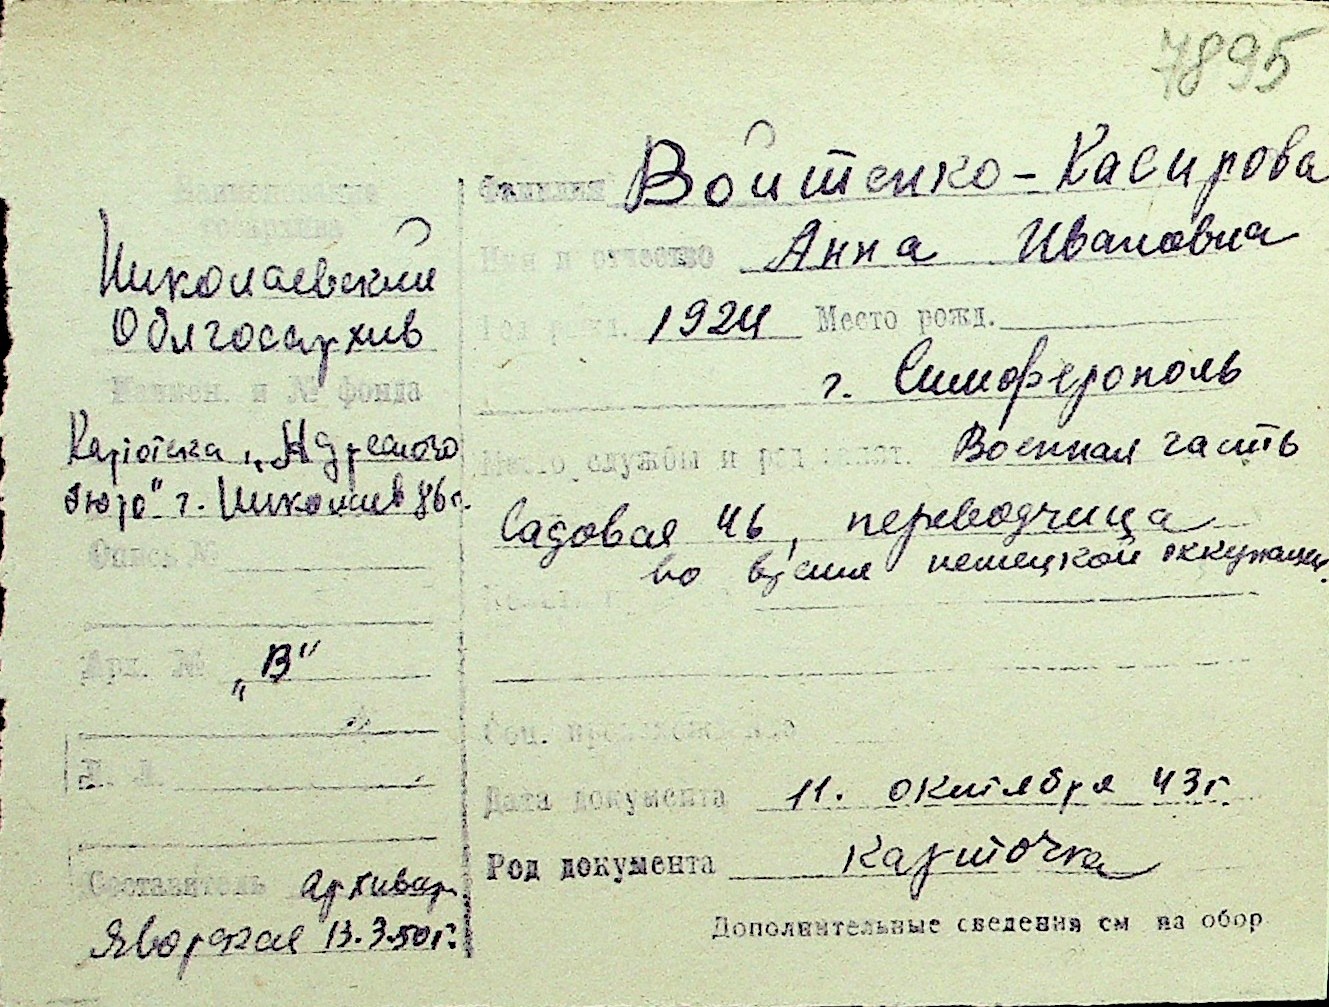 7895
Наименование
госархива
Николаевский
Облгосархив
Наимен. и № фонда
Картотека „Адресного
бюро" г. Николаев
Опись №
Арх. № „В"
Составитель архивар.
Яворская 13.3.50г.
Фамилия Войтенко-Касирова
Имя и отчество Анна Ивановна
Год рожд. 1924 Место рожд.
г. Симферополь
Место службы и род занят. Военная часть
Садовая 46, переводчица
во время немецкой оккупации.
Соц. происхождение
Дата документа 11. октября 43г.
Род документа карточка
Дополнительные сведения см на обор